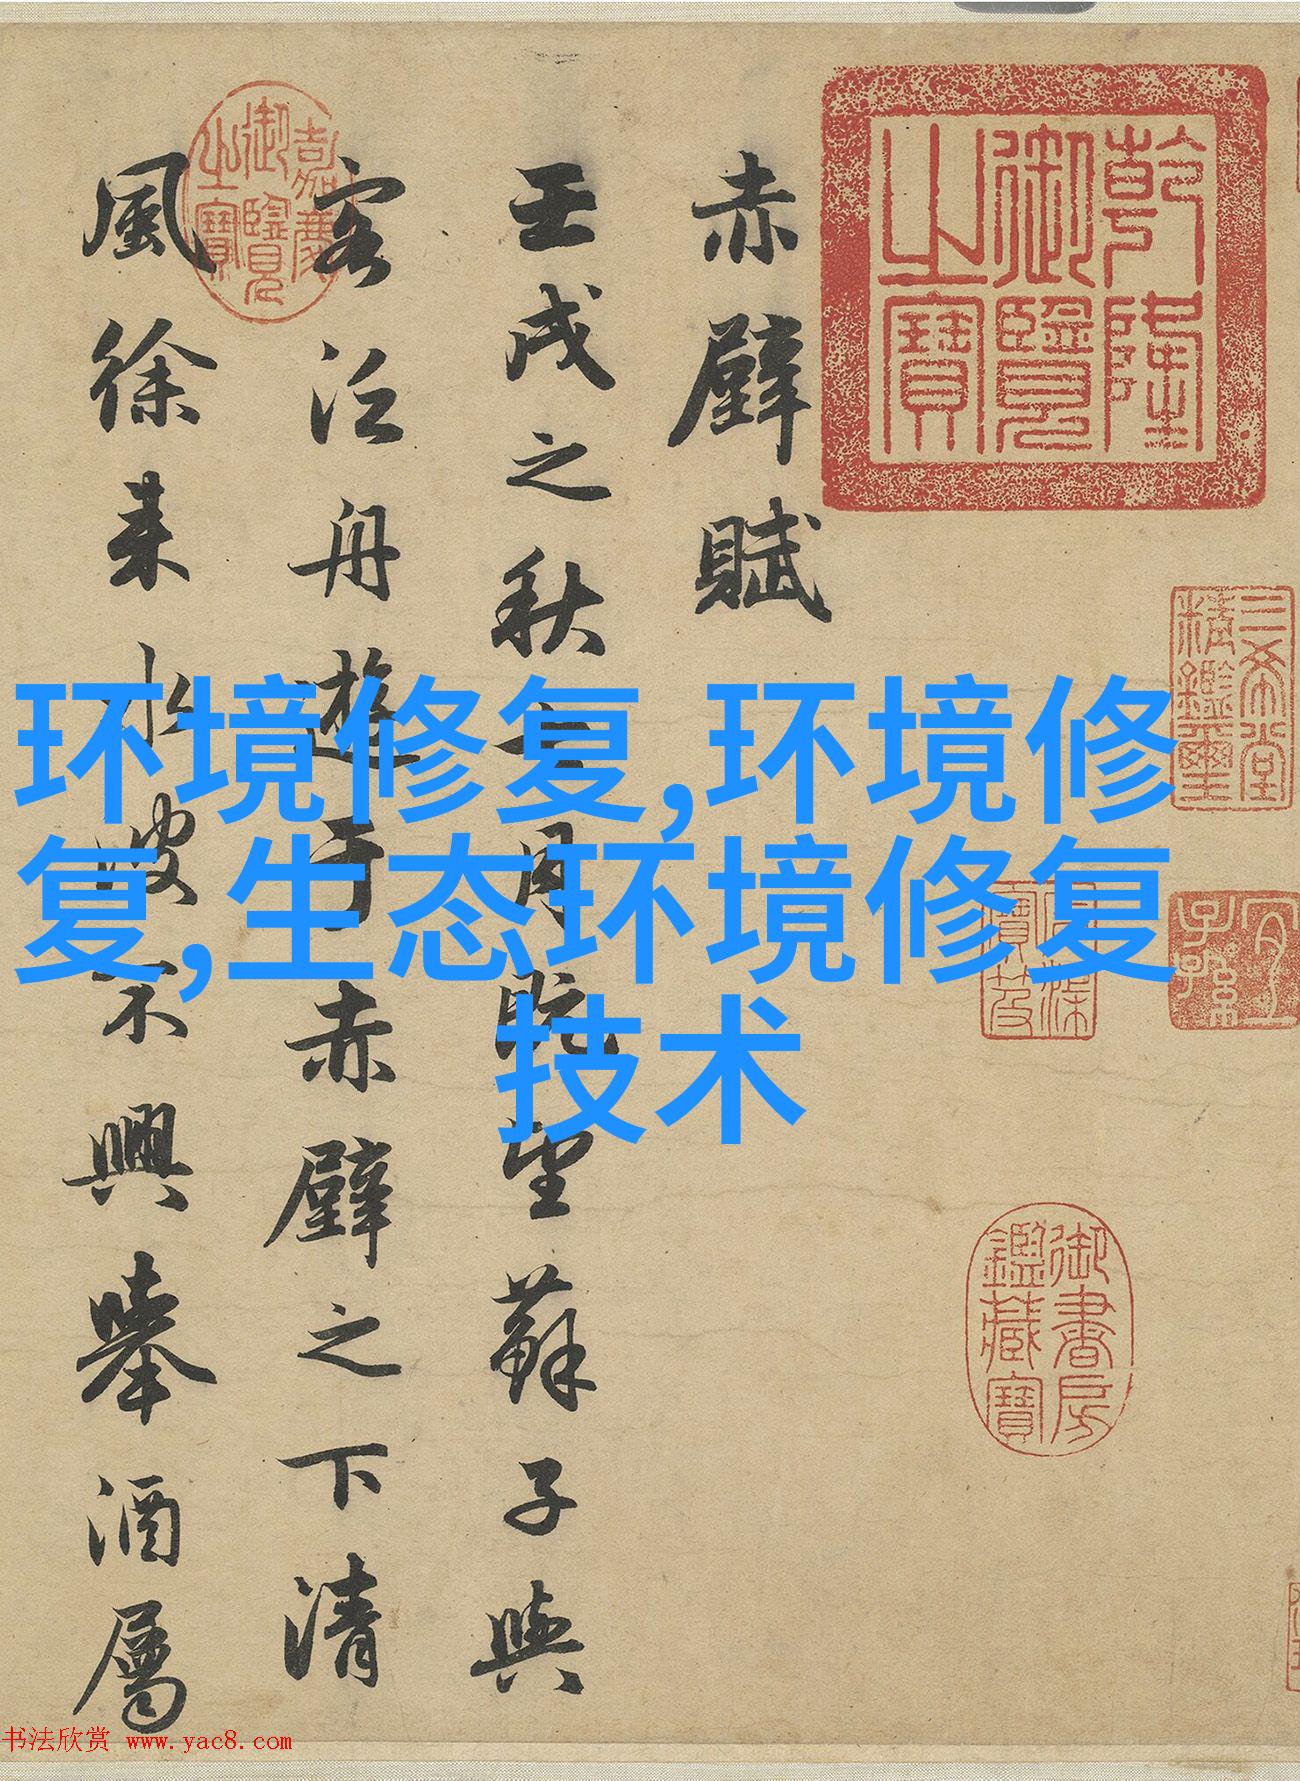 乾隆御覽之寶
三希堂精鑑璽
宜子孫
石渠寶笈
御書房鑑藏寶
赤壁賦
壬戌之秋七月既望蘇子與
客泛舟遊于赤壁之下清
風徐来水波不興舉酒屬
嘉慶御覽之寶
环境修复,环境修
复,生态环境修复
技术
书法欣赏 www.yac8.com